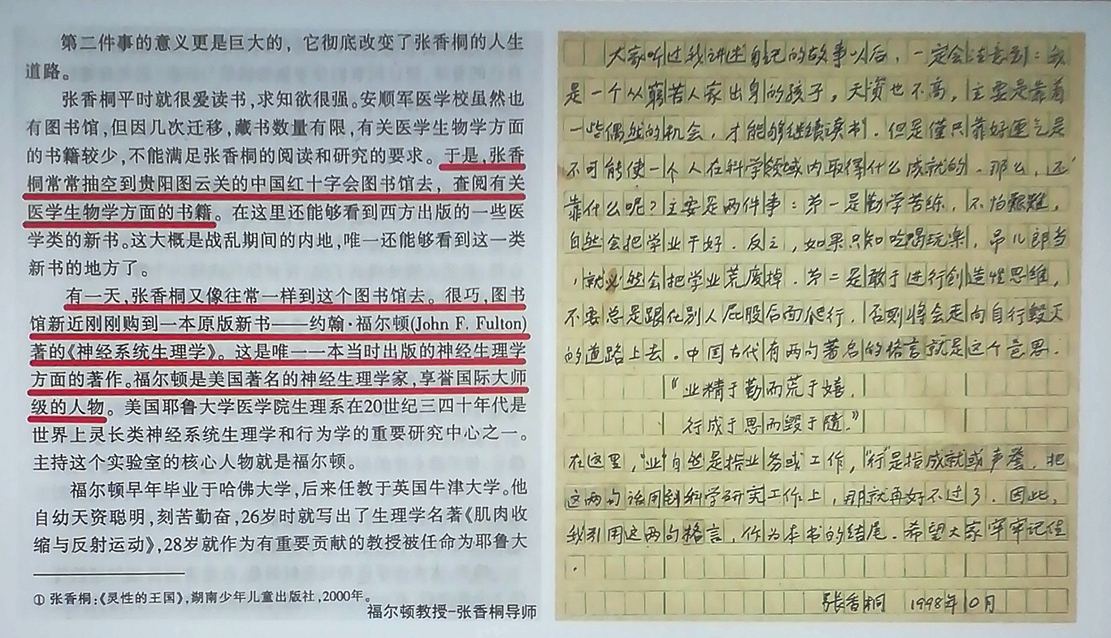 第二件事的意义更是巨大的，它彻底改变了张香桐的人生
道路。
张香桐平时就很爱读书，求知欲很强。安顺军医学校虽然也
有图书馆，但因几次迁移，藏书数量有限，有关医学生物学方面
的书籍较少，不能满足张香桐的阅读和研究的要求。于是，张香
桐常常抽空到贵阳图云关的中国红十字会图书馆去，查阅有关
医学生物学方面的书籍。在这里还能够看到西方出版的一些医
学类的新书。这大概是战乱期间的内地，唯一还能够看到这一类
新书的地方了。
有一天，张香桐又像往常一样到这个图书馆去。很巧，图书
馆新近刚刚购到一本原版新书——约翰·福尔顿(John F. Fulton)
著的《神经系统生理学》。这是唯一一本当时出版的神经生理学
方面的著作。福尔顿是美国著名的神经生理学家，享誉国际大师
级的人物。美国耶鲁大学医学院生理系在20世纪三四十年代是
世界上灵长类神经系统生理学和行为学的重要研究中心之一。
主持这个实验室的核心人物就是福尔顿。
福尔顿早年毕业于哈佛大学，后来任教于英国牛津大学。他
自幼天资聪明，刻苦勤奋，26岁时就写出了生理学名著《肌肉收
缩与反射运动》，28岁就作为有重要贡献的教授被任命为耶鲁大
① 张香桐：《灵性的王国》，湖南少年儿童出版社，2000年。
福尔顿教授-张香桐导师
大家听过我讲述自己的故事以后，一定会注意到：我
是一个从穷苦人家出身的孩子，天资也不高，主要是靠着
一些偶然的机会，才能够继续读书。但是仅只靠好运气是
不可能使一个人在科学领域内取得什么成就的。那么，还
靠什么呢？主要是两件事：第一是勤学苦练，不怕艰难，
自然会把学业干好。反之，如果只知吃喝玩乐，吊儿郎当
，就必然会把学业荒废掉。第二是敢于进行创造性思维，
不要总是跟在别人屁股后面爬行，否则将会走向自行毁灭
的道路上去。中国古代有两句著名的格言就是这个意思：
“业精于勤而荒于嬉，
行成于思而毁于随。”
在这里，“业”自然是指业务或工作，“行”是指成就或声誉。把
这两句话用到科学研究工作上，那就再好不过了。因此，
我引用这两句格言，作为本书的结尾。希望大家牢牢记住
。
张香桐 1998年10月